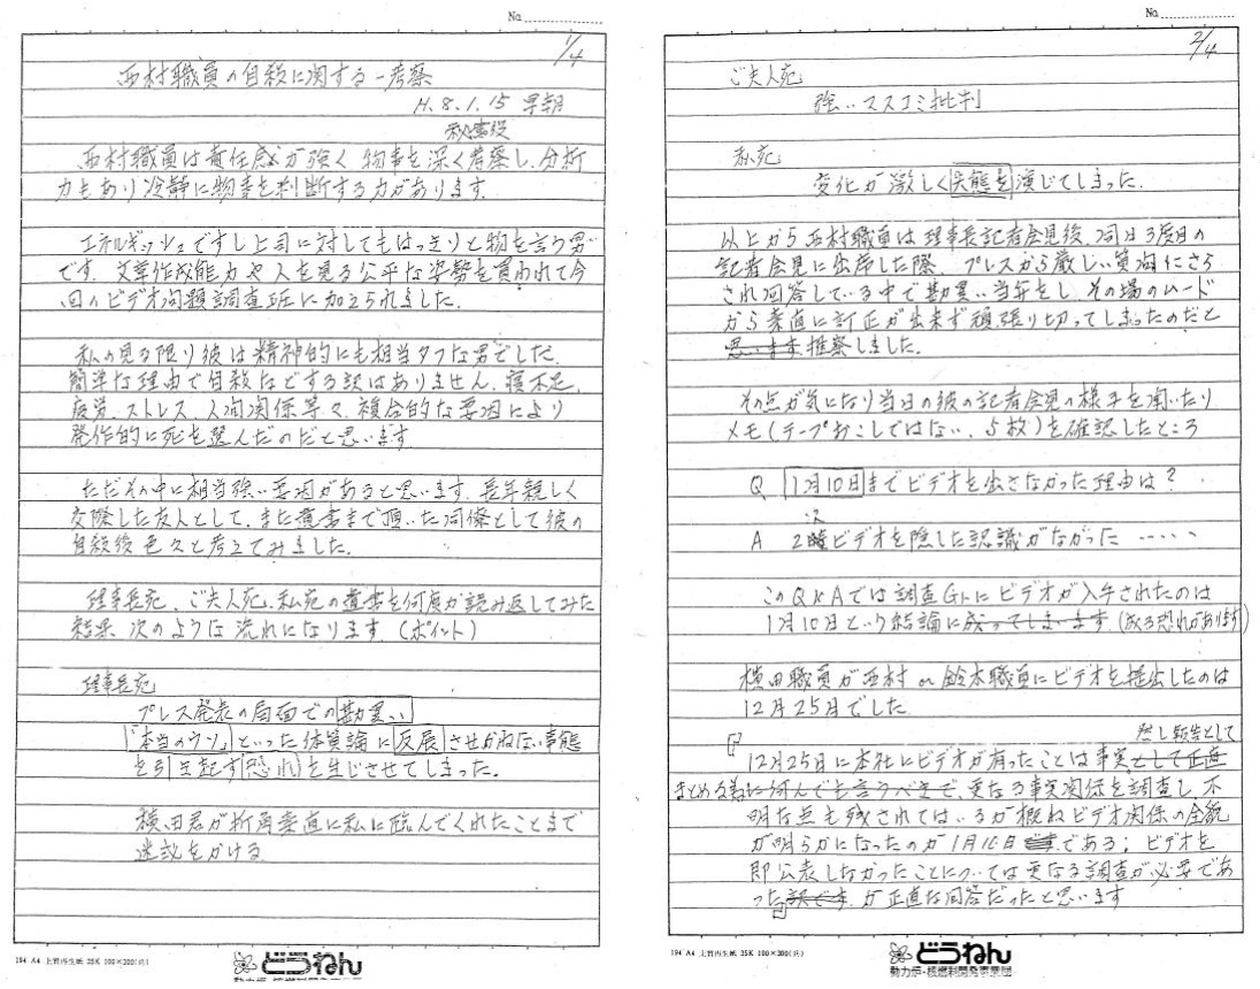 No.
1/4
西村職員の自殺に関する一考察
H.8.1.15 早朝
秘書役
西村職員は責任感が強く 物事を深く考察し、分析
力もあり冷静に物事を判断する力があります。
エネルギッシュですし上司に対してもはっきりと物を言う男
です。文章作成能力や人を見る公平な姿勢を買われて今
回のビデオ問題調査班に加えられました。
私の見る限り彼は精神的にも相当タフな男でした。
簡単な理由で自殺などする訳はありません。寝不足、
疲労、ストレス、人間関係等々、複合的な要因により
発作的に死を選んだのだと思います。
ただその中に相当強い要因があると思います。長年親しく
交際した友人として、また遺書まで頂いた同僚として彼の
自殺後色々と考えてみました。
理事長宛、ご夫人宛、私宛の遺書を何度か読み返してみた
結果、次のような流れになります。(ポイント)
理事長宛
プレス発表の局面での勘違い
「本当のウソ」といった体質論に反展させかねない事態
を引き起す恐れを生じさせてしまった。
横田君が折角素直に私に臨んでくれたことまで
迷惑をかける
194 A4 上質再生紙 35K 100×200(兵)
どうねん
動力炉・核燃料開発事業団
No.
2/4
ご夫人宛
強いマスコミ批判
私宛
変化が激しく失態を演じてしまった。
以上から西村職員は理事長記者会見後、同日3度目の
記者会見に出席した際、プレスから厳しい質問にさら
され回答している中で勘違い、当年をし、その場のムード
から素直に訂正が出来ず頑張り切ってしまったのだと
思います 推察しました。
その点が気になり当日の彼の記者会見の様子を聞いたり
メモ(テープおこしではない、5枚)を確認したところ
Q 1月10日までビデオを出さなかった理由は?
次
A 2ビデオを隠した認識がなかった ‥‥‥
このQ&Aでは調査Gr.にビデオが入手されたのは
1月10日という結論に成ってしまいます。(成る恐れがあります)
横田職員が西村 or 鈴木職員にビデオを提出したのは
12月25日でした。
然し、私としては
「12月25日に本社にビデオが有ったことは事実として正直
に何んでも言うべきで、更なる事実関係を調査し、不
明な点も残されてはいるが概ねビデオ関係の全貌
が明らかになったのが1月10日です である; ビデオを
即公表しなかったことについては更なる調査が必要であ
った 訳です。」が正直な回答だったと思います
194 A4 上質再生紙 35K 100×200(兵)
どうねん
動力炉・核燃料開発事業団